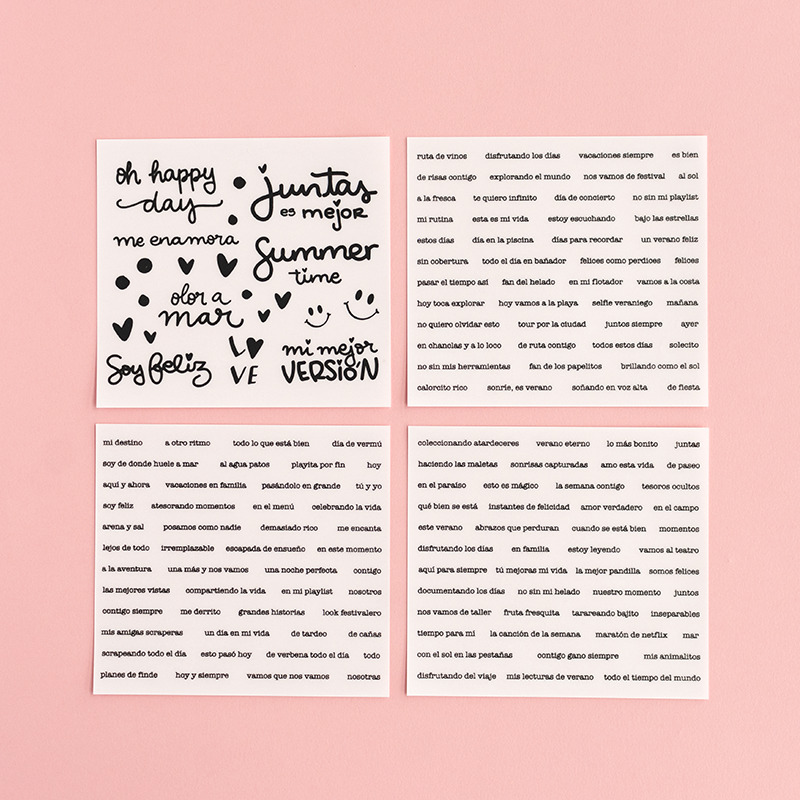 oh happy
day
juntas
es mejor
me enamora
Summer
time
olor a
mar
Soy feliz
LO
VE
mi mejor
VERSIÓN
ruta de vinos disfrutando los días vacaciones siempre es bien
de risas contigo explorando el mundo nos vamos de festival al sol
a la fresca te quiero infinito día de concierto no sin mi playlist
mi rutina esta es mi vida estoy escuchando bajo las estrellas
estos días día en la piscina días para recordar un verano feliz
sin cobertura todo el día en bañador felices como perdices felices
pasar el tiempo así fan del helado en mi flotador vamos a la costa
hoy toca explorar hoy vamos a la playa selfie veraniego mañana
no quiero olvidar esto tour por la ciudad juntos siempre ayer
en chanclas y a lo loco de ruta contigo todos estos días solecito
no sin mis herramientas fan de los papelitos brillando como el sol
calorcito rico sonríe, es verano soñando en voz alta de fiesta
mi destino a otro ritmo todo lo que está bien día de vermú
soy de donde huele a mar al agua patos playita por fin hoy
aquí y ahora vacaciones en familia pasándolo en grande tú y yo
soy feliz atesorando momentos en el menú celebrando la vida
arena y sal posamos como nadie demasiado rico me encanta
lejos de todo irremplazable escapada de ensueño en este momento
a la aventura una más y nos vamos una noche perfecta contigo
las mejores vistas compartiendo la vida en mi playlist nosotros
contigo siempre me derrito grandes historias look festivalero
mis amigas scraperas un día en mi vida de tardeo de cañas
scrapeando todo el día esto pasó hoy de verbena todo el día todo
planes de finde hoy y siempre vamos que nos vamos nosotras
coleccionando atardeceres verano eterno lo más bonito juntas
haciendo las maletas sonrisas capturadas amo esta vida de paseo
en el paraíso esto es mágico la semana contigo tesoros ocultos
qué bien se está instantes de felicidad amor verdadero en el campo
este verano abrazos que perduran cuando se está bien momentos
disfrutando los días en familia estoy leyendo vamos al teatro
aquí para siempre tú mejoras mi vida la mejor pandilla somos felices
documentando los días no sin mi helado nuestro momento juntos
nos vamos de taller fruta fresquita tarareando bajito inseparables
tiempo para mí la canción de la semana maratón de netflix mar
con el sol en las pestañas contigo gano siempre mis animalitos
disfrutando del viaje mis lecturas de verano todo el tiempo del mundo